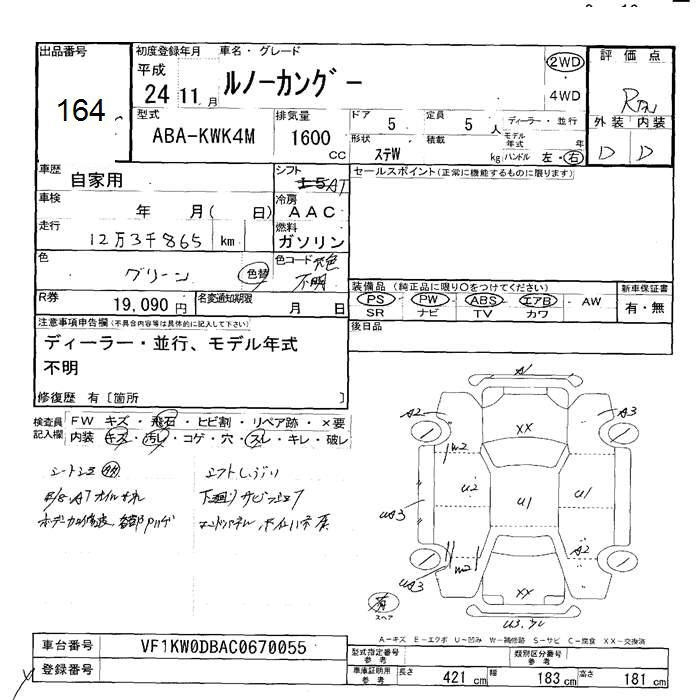 出品番号
164
初度登録年月
平成
24 11 月
車名・グレード
ルノーカングー
2WD
4WD
評価点
外装 内装
D D
型式
ABA-KWK4M
排気量
1600 CC
ドア 5
定員 5 人
形状 ステW
積載 kg
ディーラー・並行
モデル年式 年
ハンドル 左・右
車歴
自家用
シフト
AT
セールスポイント(正常に機能するものに限ります)
車検
年 月( 日)
冷房
AAC
走行
12万3千865 km
燃料
ガソリン
色
グリーン
色替
色コード
不明
装備品 (純正品に限り○をつけてください)
PS・PW・ABS・エアB・AW
SR ナビ TV カワ
新車保証書
有・無
R券
19,090 円
名変通知期限
月 日
後日品
注意事項申告欄(不具合内容等は具体的に記入して下さい)
ディーラー・並行、モデル年式
不明
修復歴 有〔箇所 〕
検査員記入欄
FW キズ・飛石・ヒビ割・リペア跡・×要
内装 キズ・汚レ・コゲ・穴・スレ・キレ・破レ
A1
A2
A3
XX
W2
U2
U1
U1
UA3
UA3
W2
A2
XX
有
スペア
A-キズ E-エクボ U-凹み W-補修跡 S-サビ C-腐食 XX-交換済
車台番号
VF1KW0DBAC0670055
登録番号
型式指定番号
参考
類別区分番号
参考
車庫証明用
参考
長さ 421 cm
幅 183 cm
高さ 181 cm